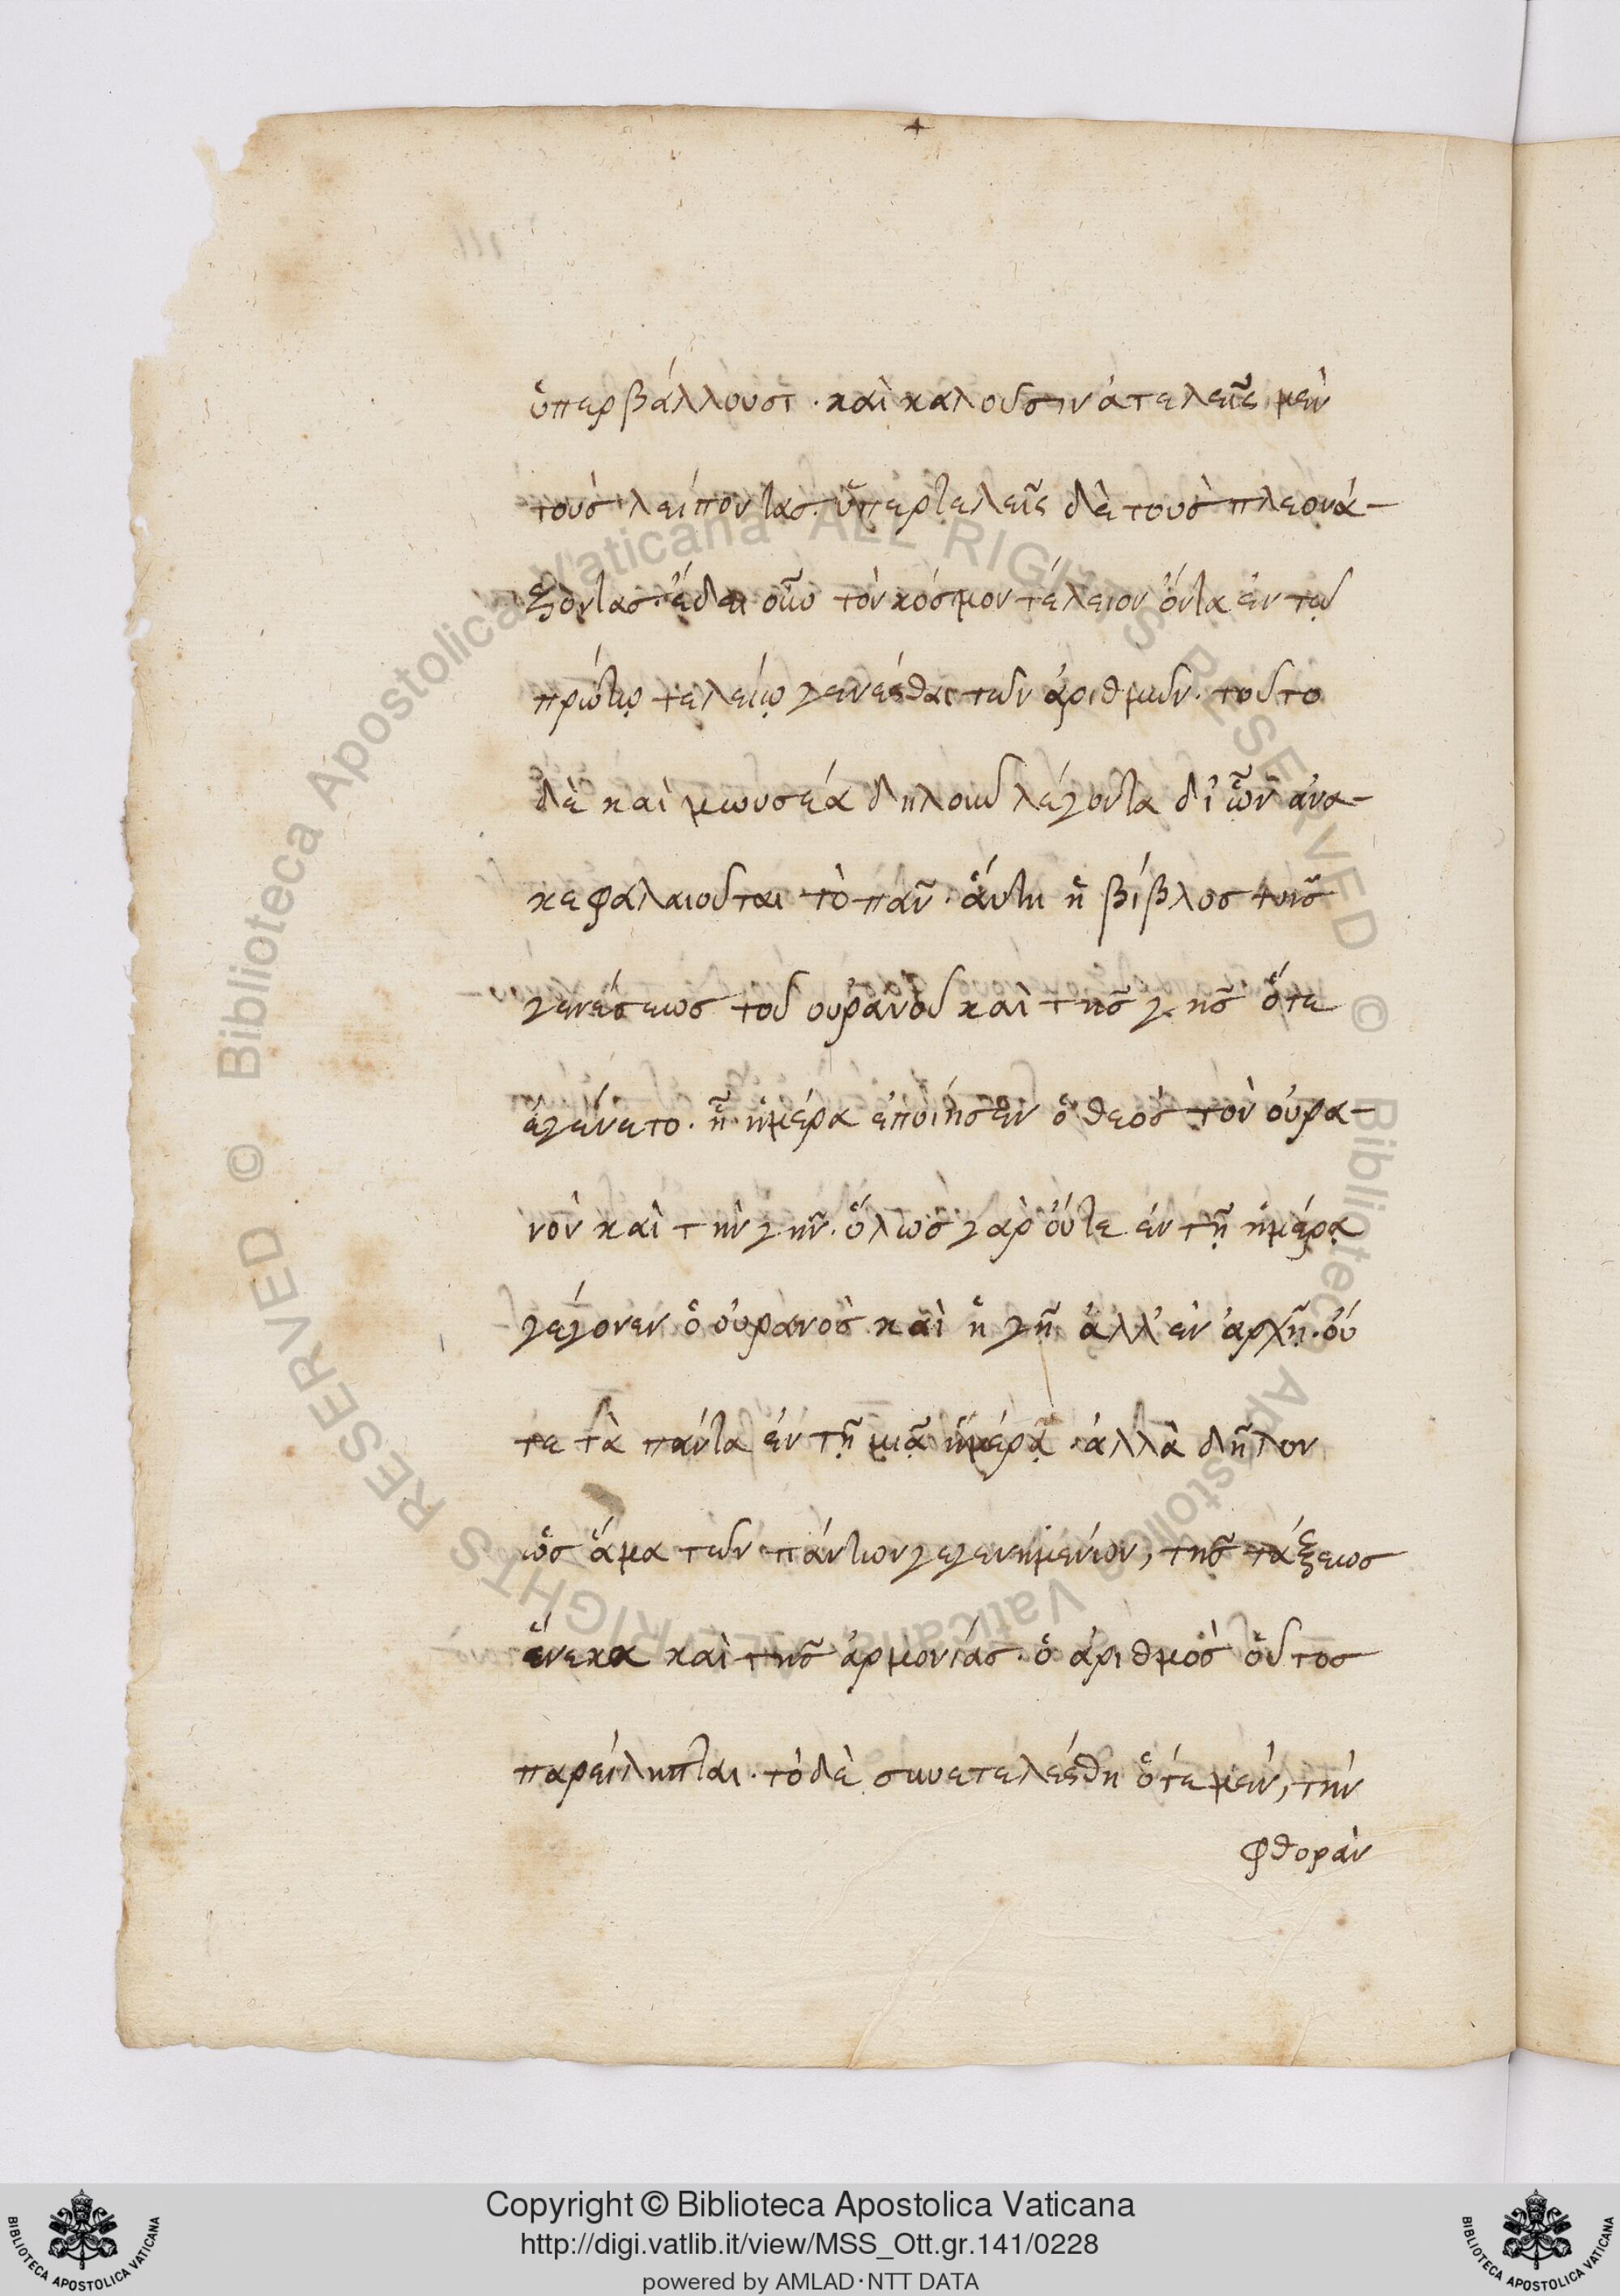 ὑπερβάλλουσι· καὶ καλοῦσιν ἀτελεῖς μὲν
τοὺς λείποντας· ὑπερτελεῖς δὲ τοὺς πλεονά-
ζοντας· ἔδει οὖν τὸν κόσμον τέλειον ὄντα ἐν τῷ
πρώτῳ τελείῳ γενέσθαι τῶν ἀριθμῶν· τοῦτο
δὲ καὶ μωυσέα δηλοῦν λέγοντα δι' ὧν ἀνα-
κεφαλαιοῦται τὸ πᾶν· αὕτη ἡ βίβλος τῆς
γενέσεως τοῦ οὐρανοῦ καὶ τῆς γῆς ὅτε
ἐγένετο· ᾗ ἡμέρα ἐποίησεν ὁ θεὸς τὸν οὐρα-
νὸν καὶ τὴν γῆν· ὅλως γὰρ οὔτε ἐν τῇ ἡμέρᾳ
γέγονεν ὁ οὐρανὸς καὶ ἡ γῆ ἀλλ' ἐν ἀρχῇ· οὔ
τε τὰ πάντα ἐν τῇ μιᾷ ἡμέρᾳ· ἀλλὰ δῆλον
ὡς ἅμα τῶν πάντων γεγενημένων, τῆς τάξεως
ἕνεκα καὶ τῆς ἁρμονίας· ὁ ἀριθμὸς οὗτος
παρείληπται· τὸ δὲ συνετελέσθη ὁτὲ μὲν, τὴν
φθορὰν
Copyright © Biblioteca Apostolica Vaticana
http://digi.vatlib.it/view/MSS_Ott.gr.141/0228
powered by AMLAD·NTT DATA